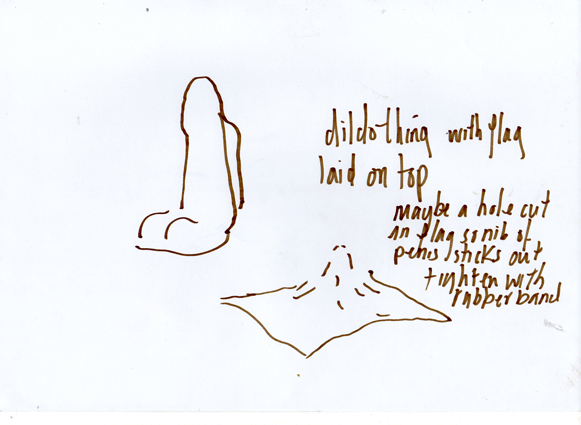 dildo thing with flag
laid on top
maybe a hole cut
in flag so nib of
penis sticks out
tighten with
rubber band